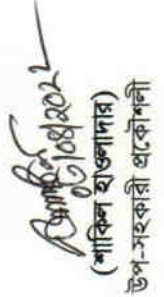 ০৬/০৪/২০২২
(শাকিল হাওলাদার)
উপ-সহকারী প্রকৌশলী